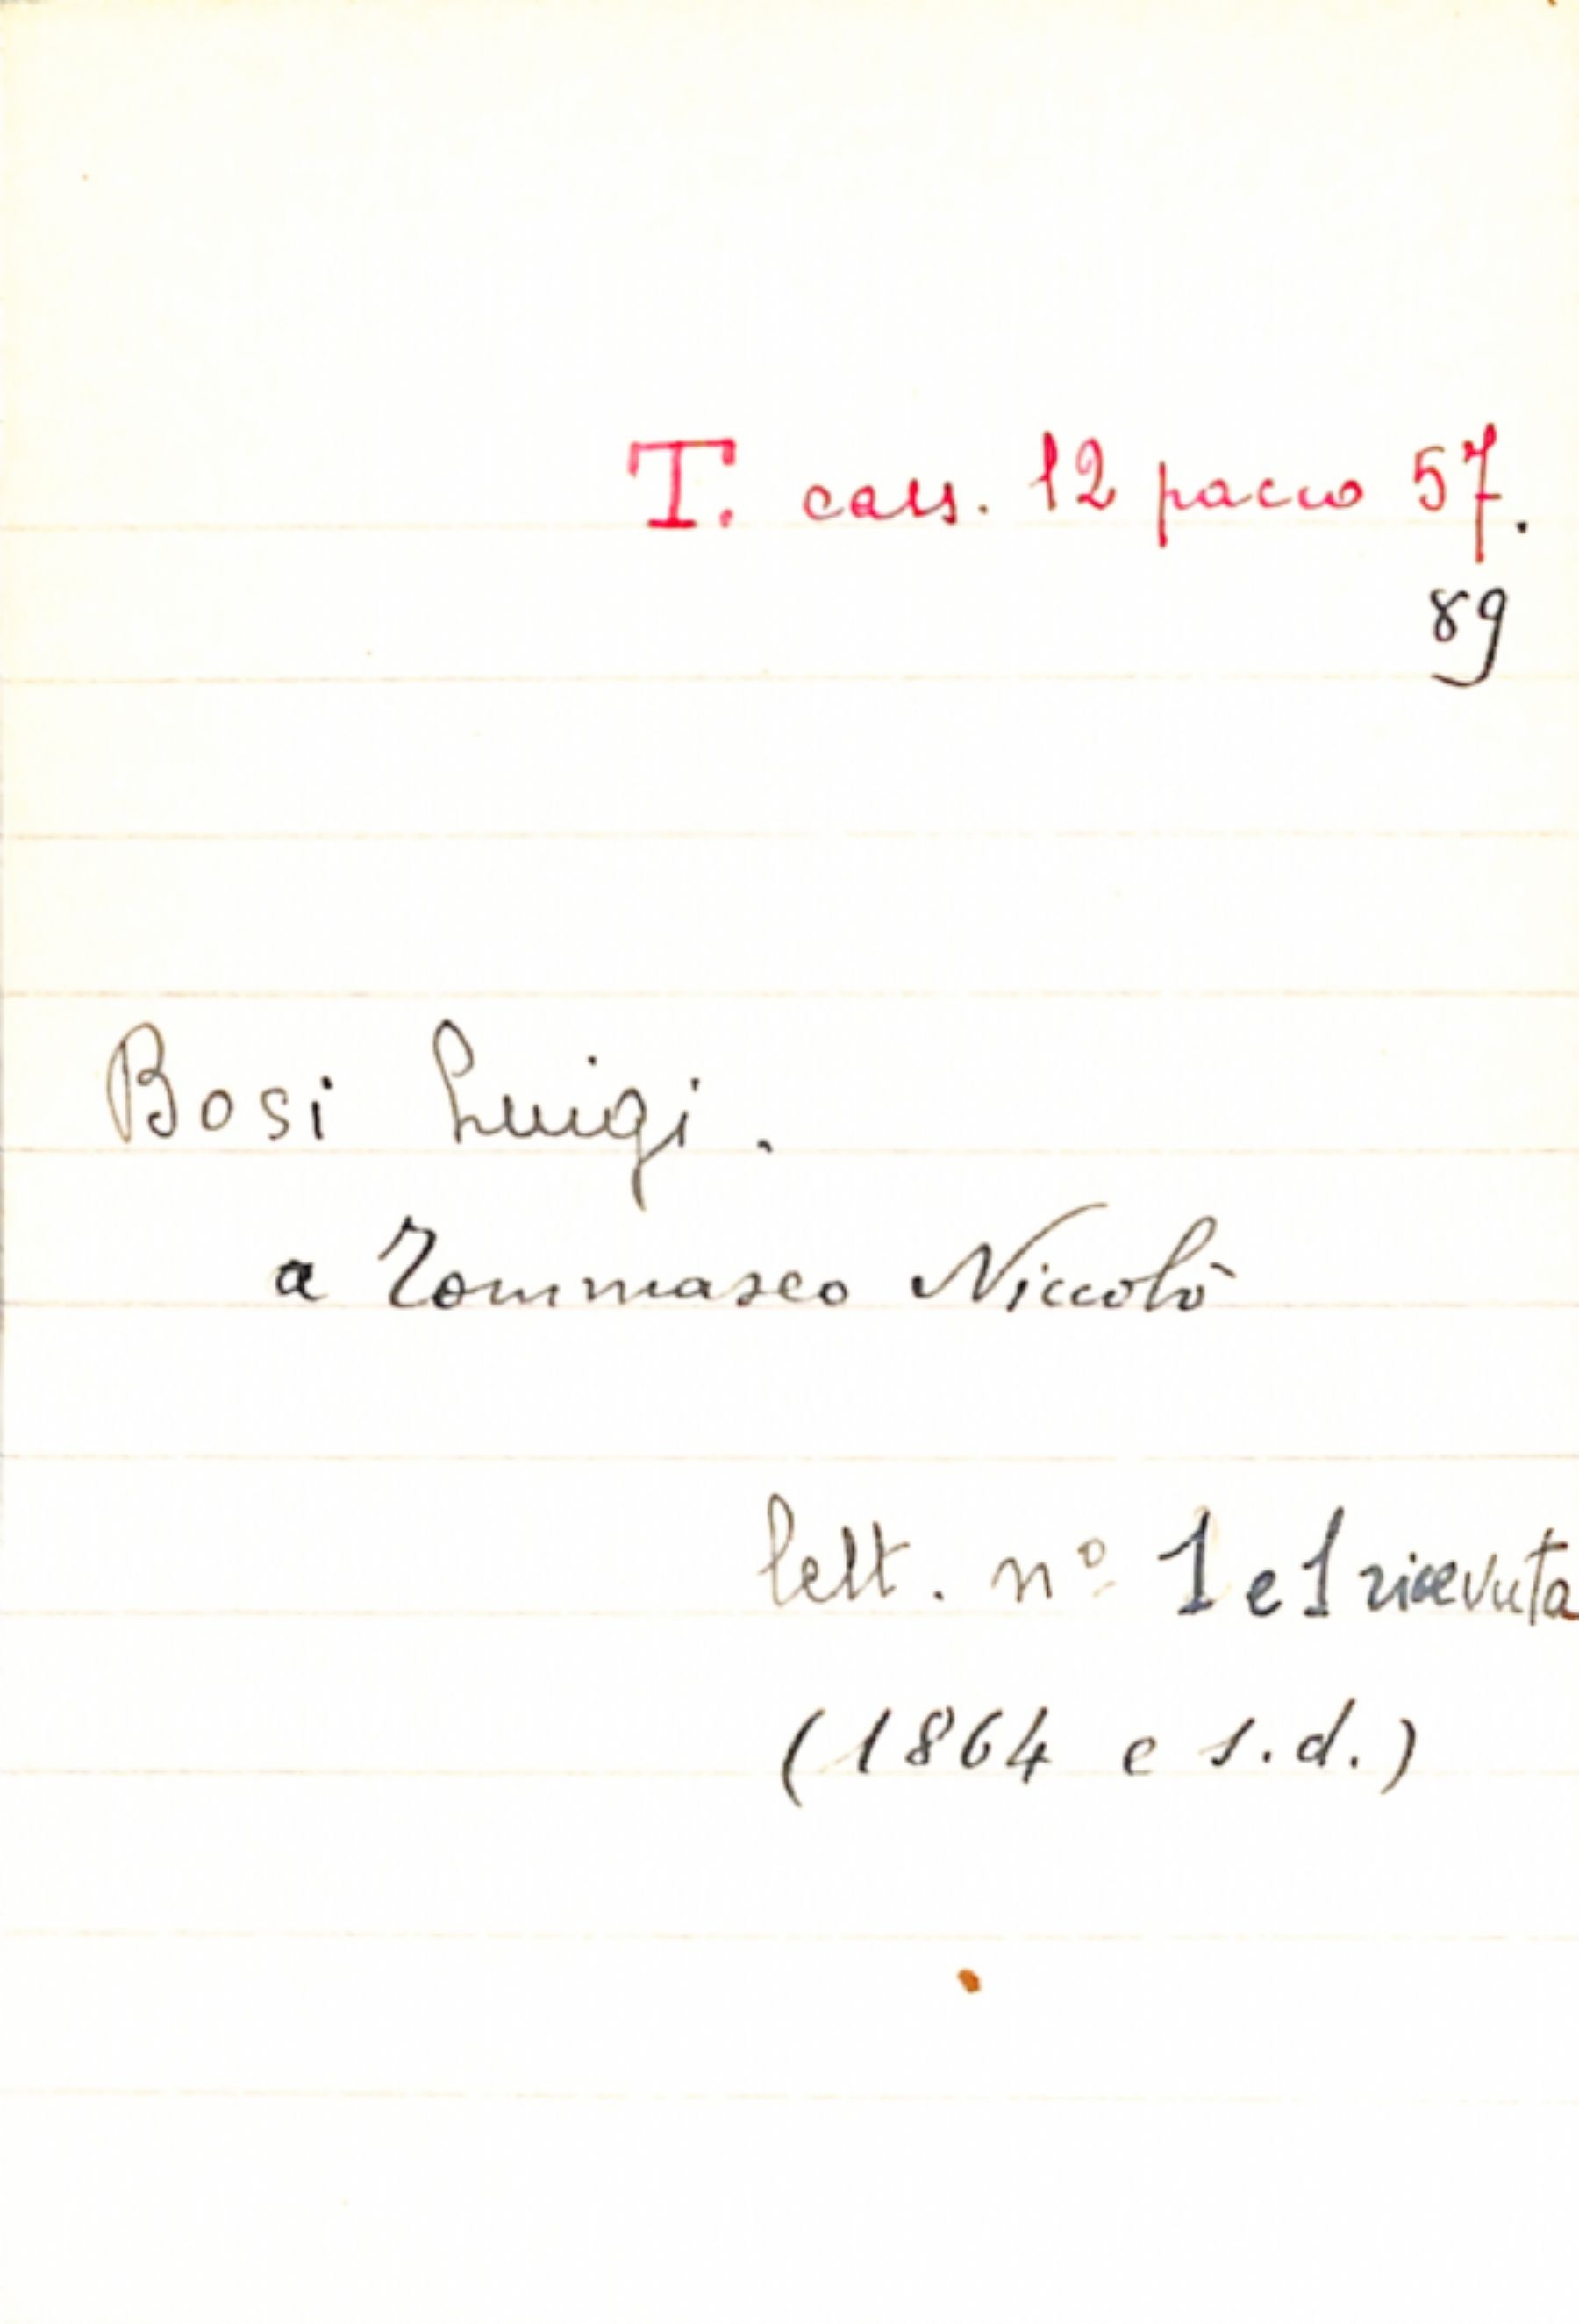 T. cass. 12 pacco 57.
89
Bosi Luigi.
a Tommaseo Niccolò
lett. nº 1 e 1 ricevuta
(1864 e s.d.)